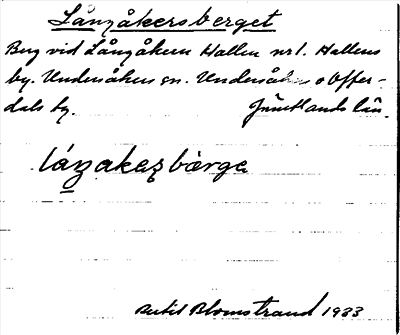 Långåkersberget
Berg vid Långåkern Hallen nr 1. Hallens
by. Undersåkers sn. Undersåkers o Offer-
dals by. Jämtlands län.
láŋakeʂbærge
Bertil Blomstrand 1933